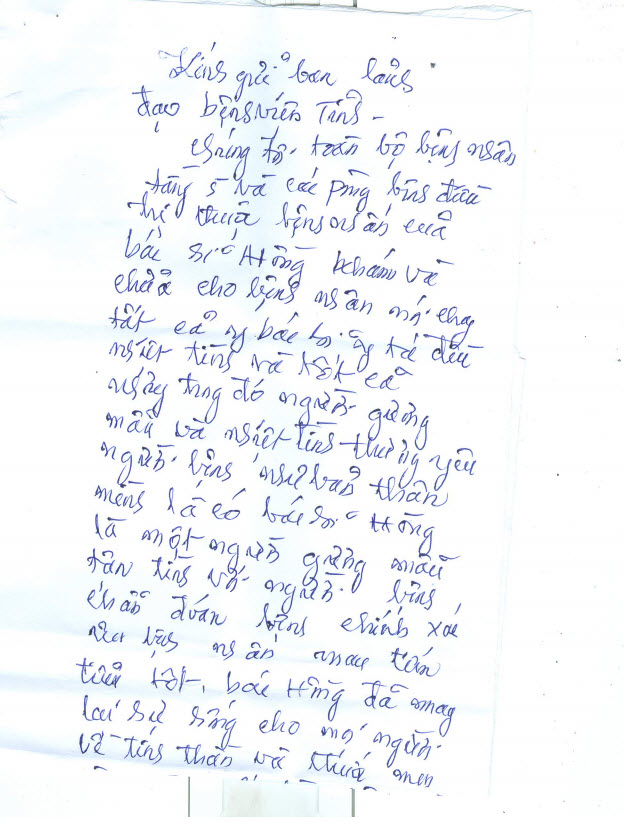 Kính gửi ban lãnh
đạo bệnh viện Tỉnh -
chúng tôi toàn bộ bệnh nhân
tầng 5 và các phòng bệnh điều
trị thuộc bệnh nhân của
bác sĩ Hồng khám và
chữa cho bệnh nhân nói chung
tất cả bác sĩ y tá đều
nhiệt tình và tốt cả
nhưng trong đó người gương
mẫu và nhiệt tình thương yêu
người bệnh như bản thân
mình là có bác sĩ Hồng
là một người gương mẫu
tận tình với người bệnh
chẩn đoán bệnh chính xác
nên bệnh nhân mau tiến
triển tốt, bác Hồng đã mang
lại sự sống cho mọi người
về tinh thần và thuốc men